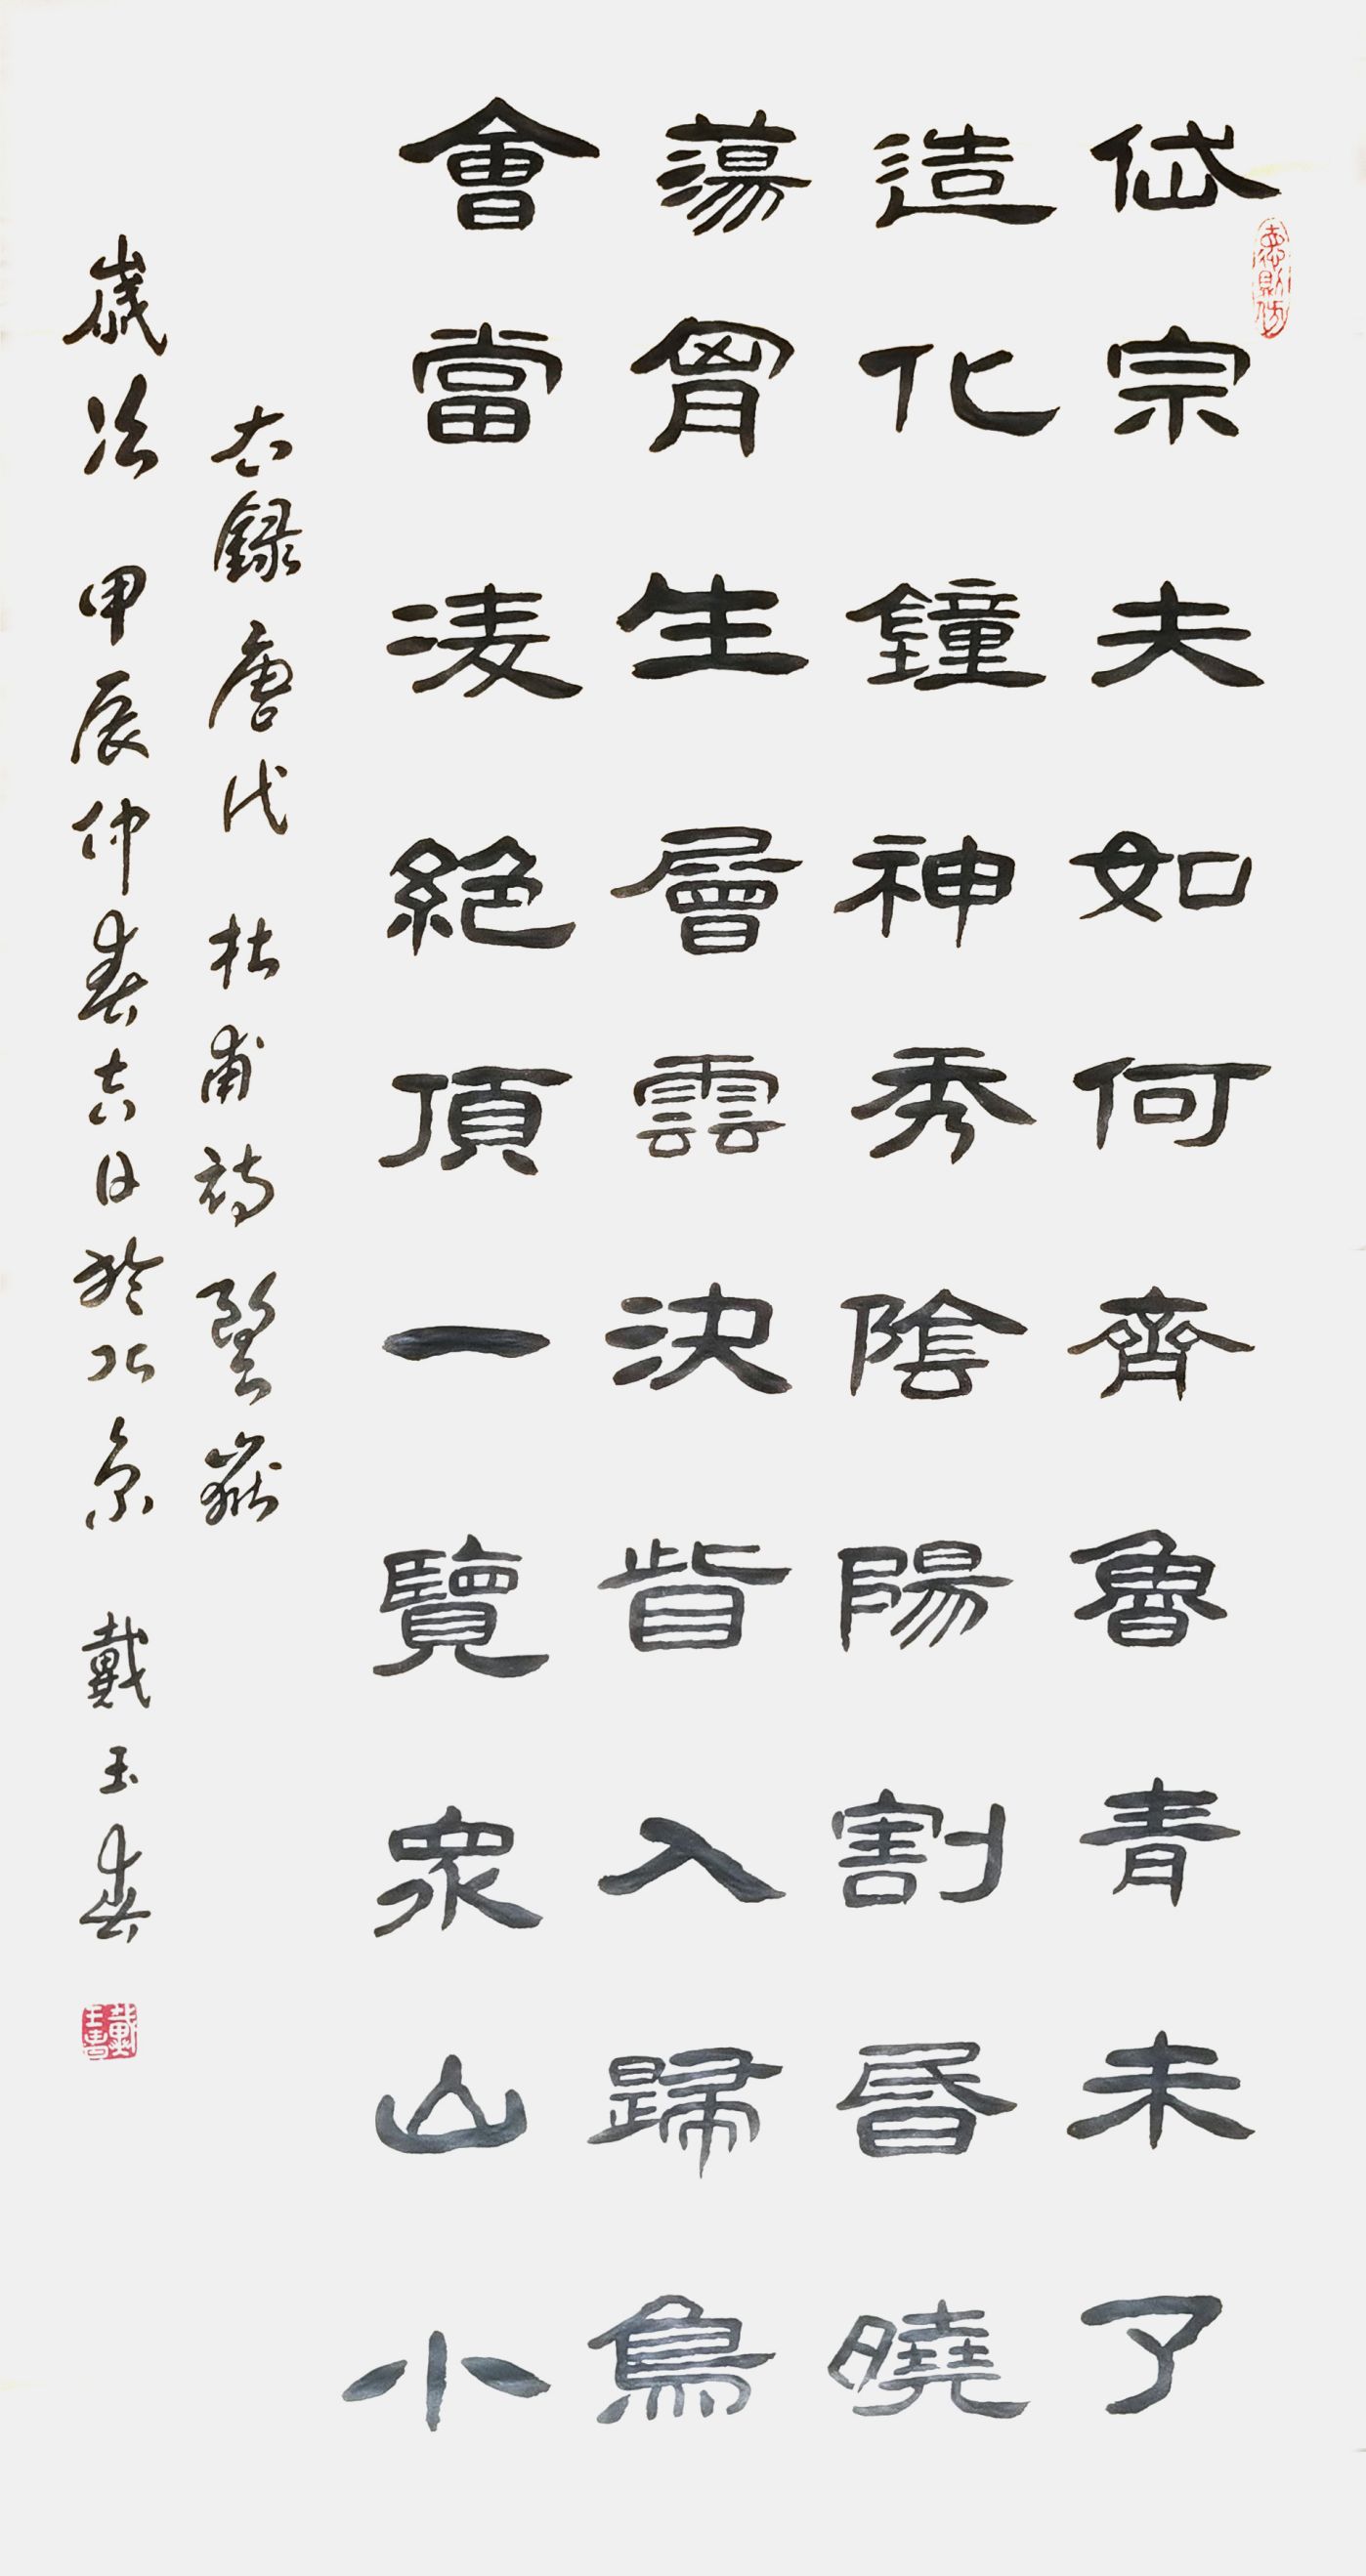 岱宗夫如何齊魯青未了
造化鐘神秀陰陽割昏曉
蕩胷生層雲決眥入歸鳥
會當凌絕頂一覽眾山小
右錄唐代杜甫詩望嶽
歲次甲辰仲春吉日於北京戴玉春